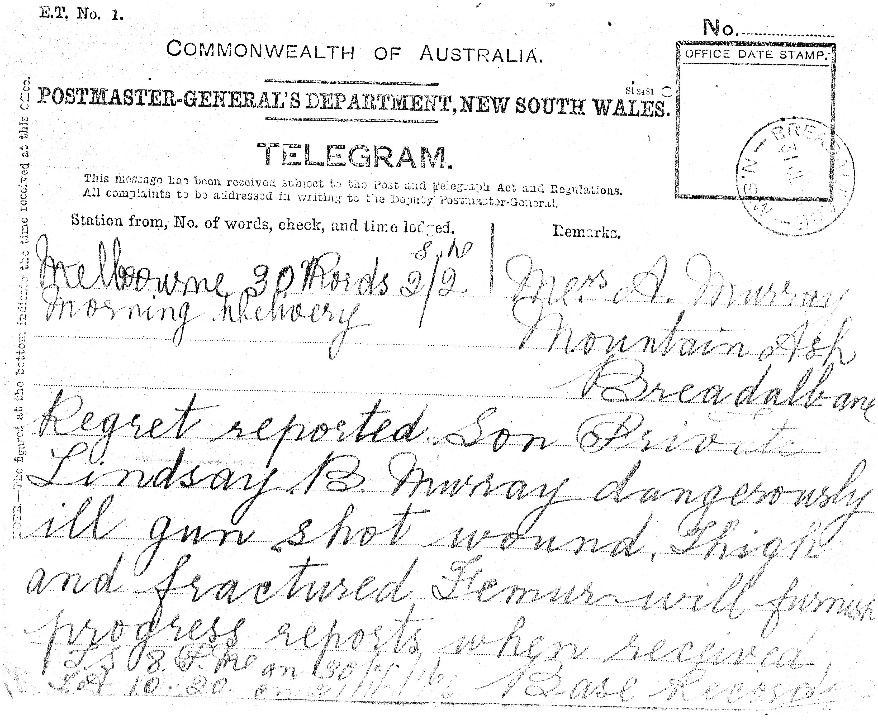 E.T. No. 1.
No.
COMMONWEALTH OF AUSTRALIA.
OFFICE DATE STAMP.
POSTMASTER-GENERAL'S DEPARTMENT, NEW SOUTH WALES.
TELEGRAM.
This message has been received subject to the Post and Telegraph Act and Regulations.
All complaints to be addressed in writing to the Deputy Postmaster-General.
Station from, No. of words, check, and time lodged.
Remarks.
Melbourne 30 Words 2/2.
Morning Delivery
Mrs A. Murray
Mountain Ash
Breadalbane
Regret reported Son Private
Lindsay B. Murray dangerously
ill gun shot wound, Thigh
and fractured Femur will furnish
progress reports when received
Base Records
NOTE.—The figures at the bottom indicate the time received at this Office.
BREADALBANE N.S.W